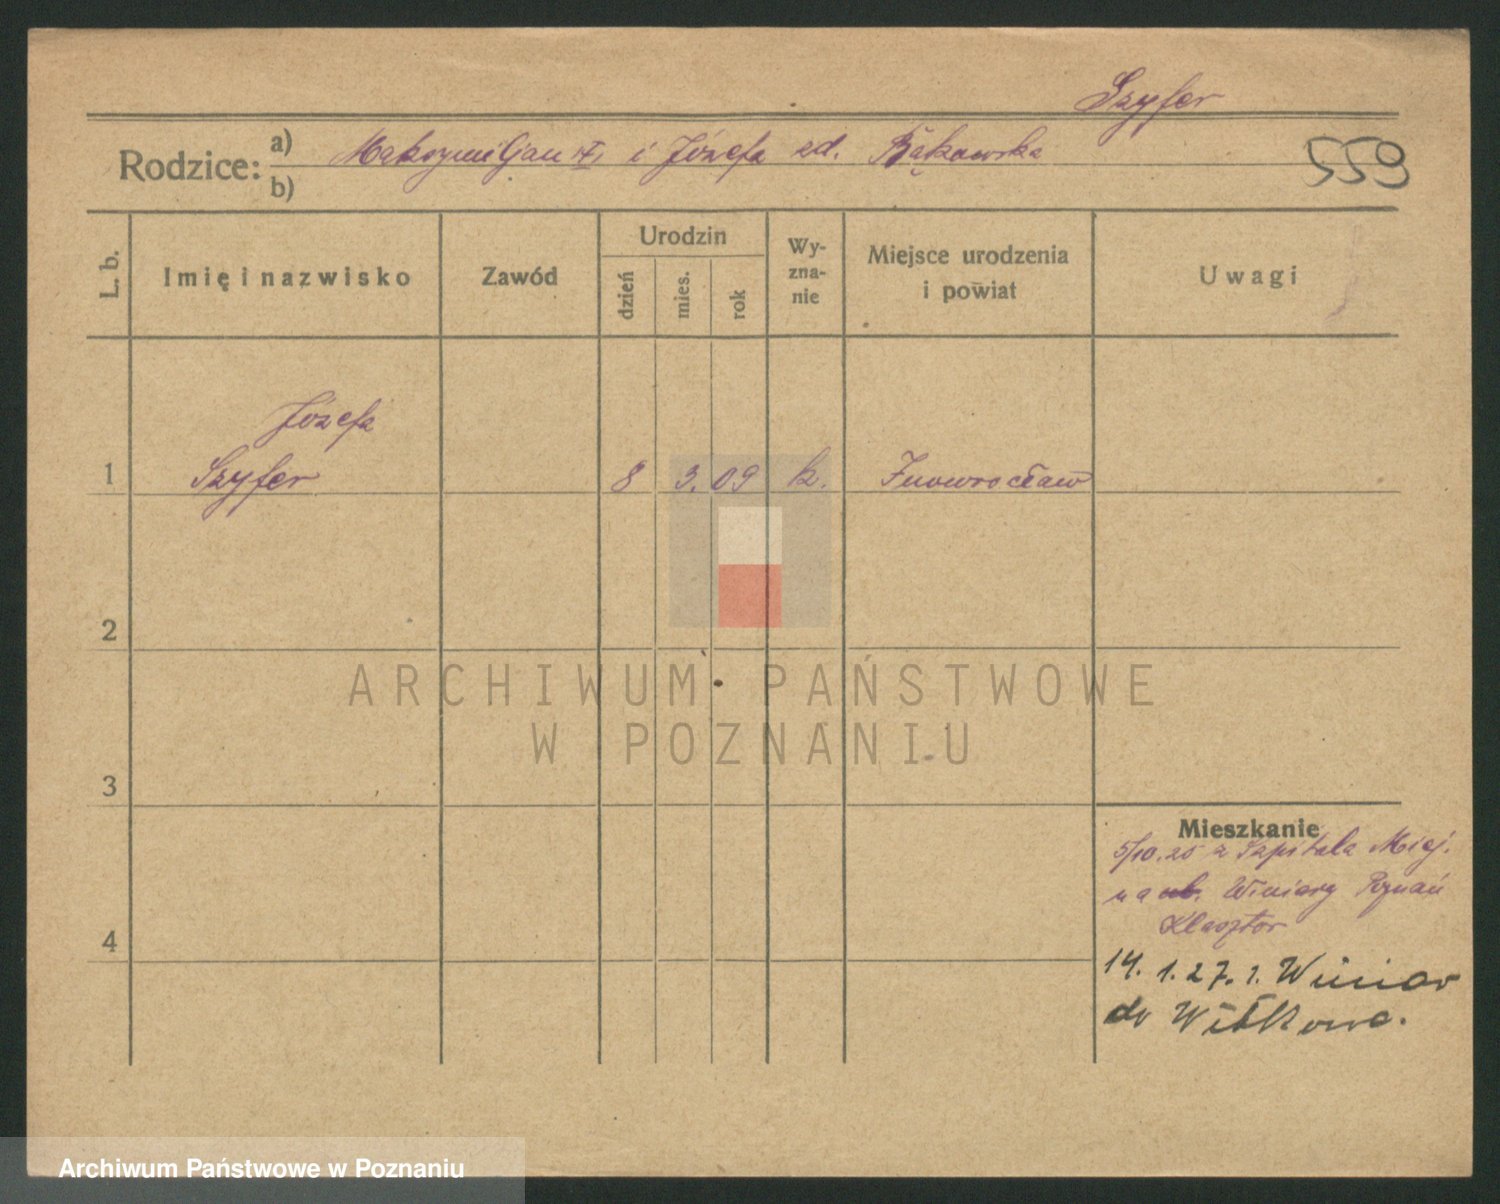 Szyfer
Rodzice: a) Maksymiljan i Józefa zd. Bąkowska
b)
559
L. b.
Imię i nazwisko
Zawód
Urodzin
dzień
mies.
rok
Wy-
zna-
nie
Miejsce urodzenia
i powiat
Uwagi
Józefa
1 Szyfer 8 3. 09 k. Inowrocław
2
3
4
Mieszkanie
5/10.25 z Szpitala Miej.
na ul. Winiary Poznań
Klasztor
14. 1. 27. z Winiar
do Witkowa.
ARCHIWUM PAŃSTWOWE
W POZNANIU
Archiwum Państwowe w Poznaniu